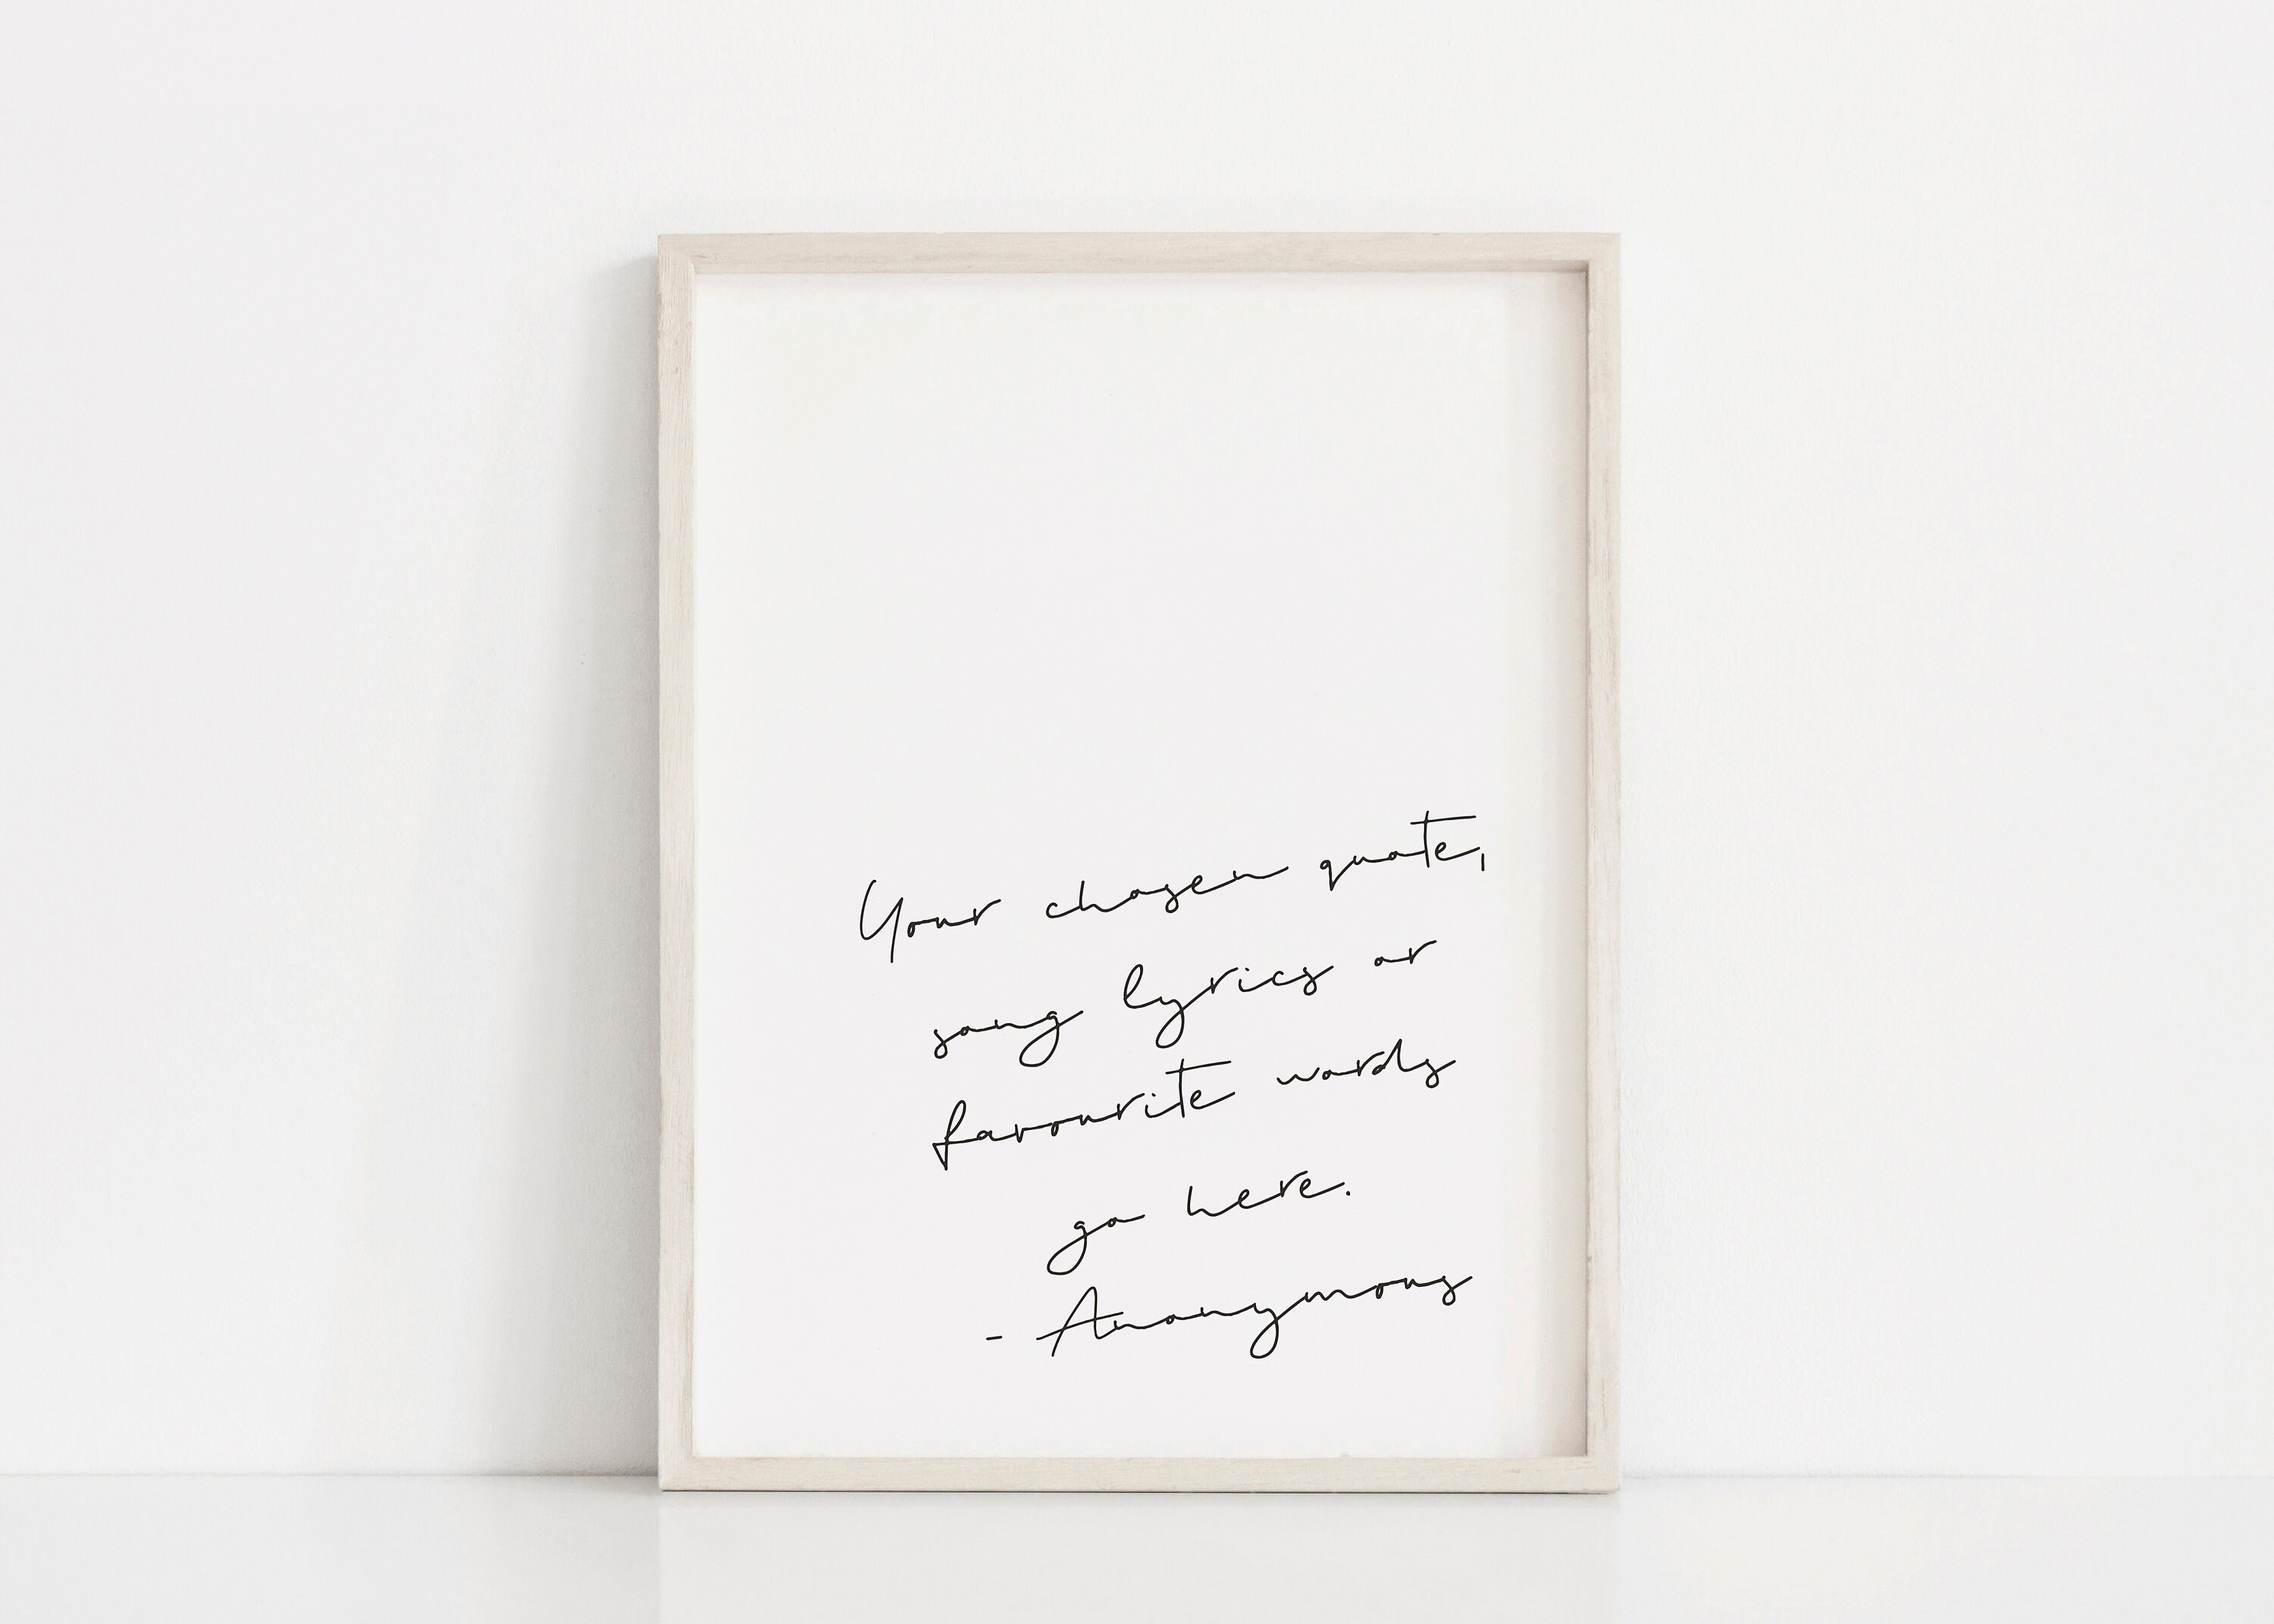 Your chosen quote,
song lyrics or
favourite words
go here.
- Anonymous